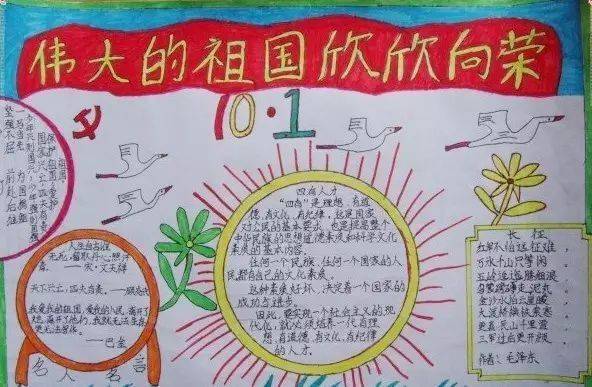 伟大的祖国欣欣向荣
10·1
四有人才
"四有"是理想、有道
德、有文化、有纪律，这是国家
对公民的基本要求，也是提高整个
中华民族的思想道德素质和科学文化
素质的基本内容。
任何一个民族、任何一个国家的人
民都有自己的文化素质。
这种素质好坏，决定着一个国家的
成功与进步。
因此，要实现一个社会主义的现
代化，就必须培养一代有理
想、有道德、有文化、有纪律
的人才。
人生自古谁
无死，留取丹心照汗
青。 宋·文天祥
天下兴亡，匹夫有责。
我爱我的祖国，爱我的人民，离开了
她，离开了他们，我就无法生存，
更无法写作。
——巴金
名人名言
长征
红军不怕远征难，
万水千山只等闲
五岭逶迤腾细浪
乌蒙磅礴走泥丸
金沙水拍云崖暖
大渡桥横铁索寒
更喜岷山千里雪
三军过后尽开颜
作者：毛泽东